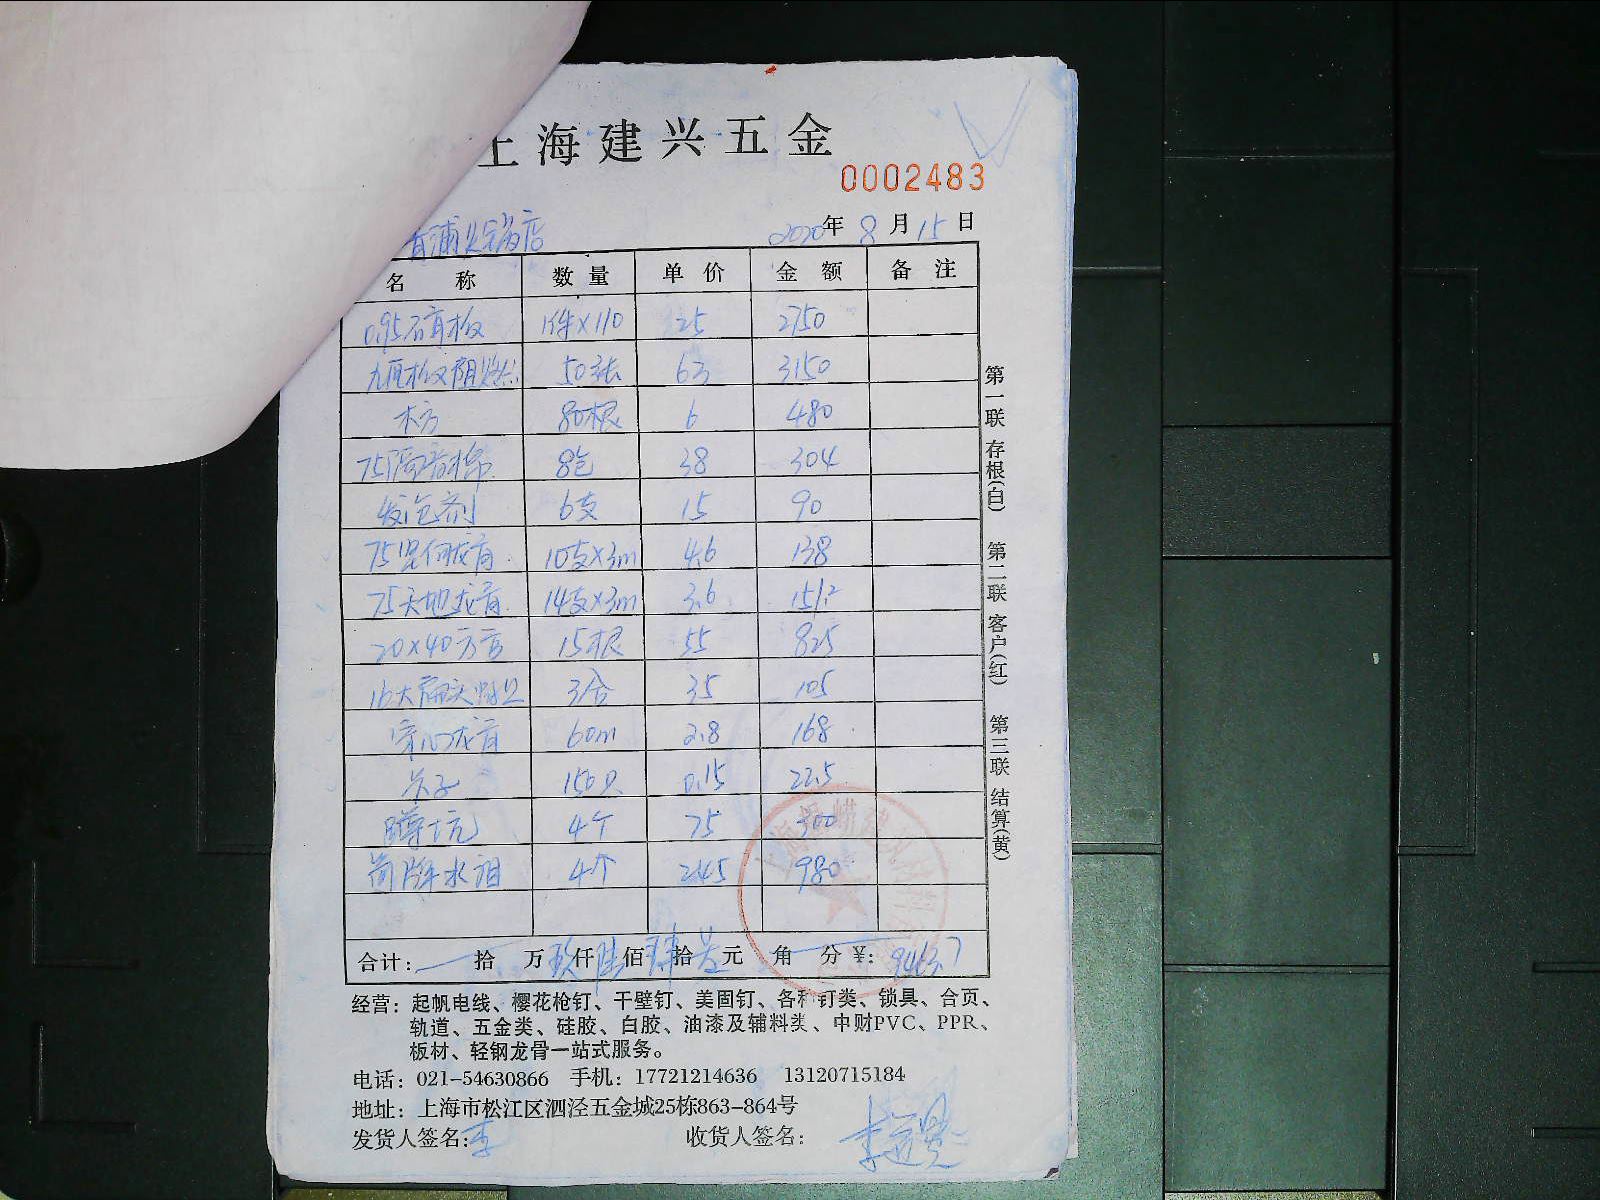 上海建兴五金
0002483
青浦火锅店 2020年8月15日
名称 数量 单价 金额 备注
0.95石膏板 1件×110 25 2750
九厘板阻燃 50张 63 3150
木方 80根 6 480
75隔音棉 8包 38 304
发泡剂 6支 15 90
75竖向龙骨 10支×3m 4.6 138
75天地龙骨 14支×3m 3.6 151.2
20×40方管 15根 55 825
16大扁头 3合 35 105
穿心龙骨 60m 2.8 168
卡子 150只 0.15 22.5
蹲坑 4个 75 300
水泪 4个 245 980
合计: 拾 万玖仟 佰 拾 元 角 分 ¥:
经营: 起帆电线、樱花枪钉、干壁钉、美固钉、各种钉类、锁具、合页、
轨道、五金类、硅胶、白胶、油漆及辅料类、中财PVC、PPR、
板材、轻钢龙骨一站式服务。
电话: 021-54630866 手机: 17721214636 13120715184
地址: 上海市松江区泗泾五金城25栋863-864号
发货人签名:李 收货人签名:
第一联 存根(白) 第二联 客户(红) 第三联 结算(黄)